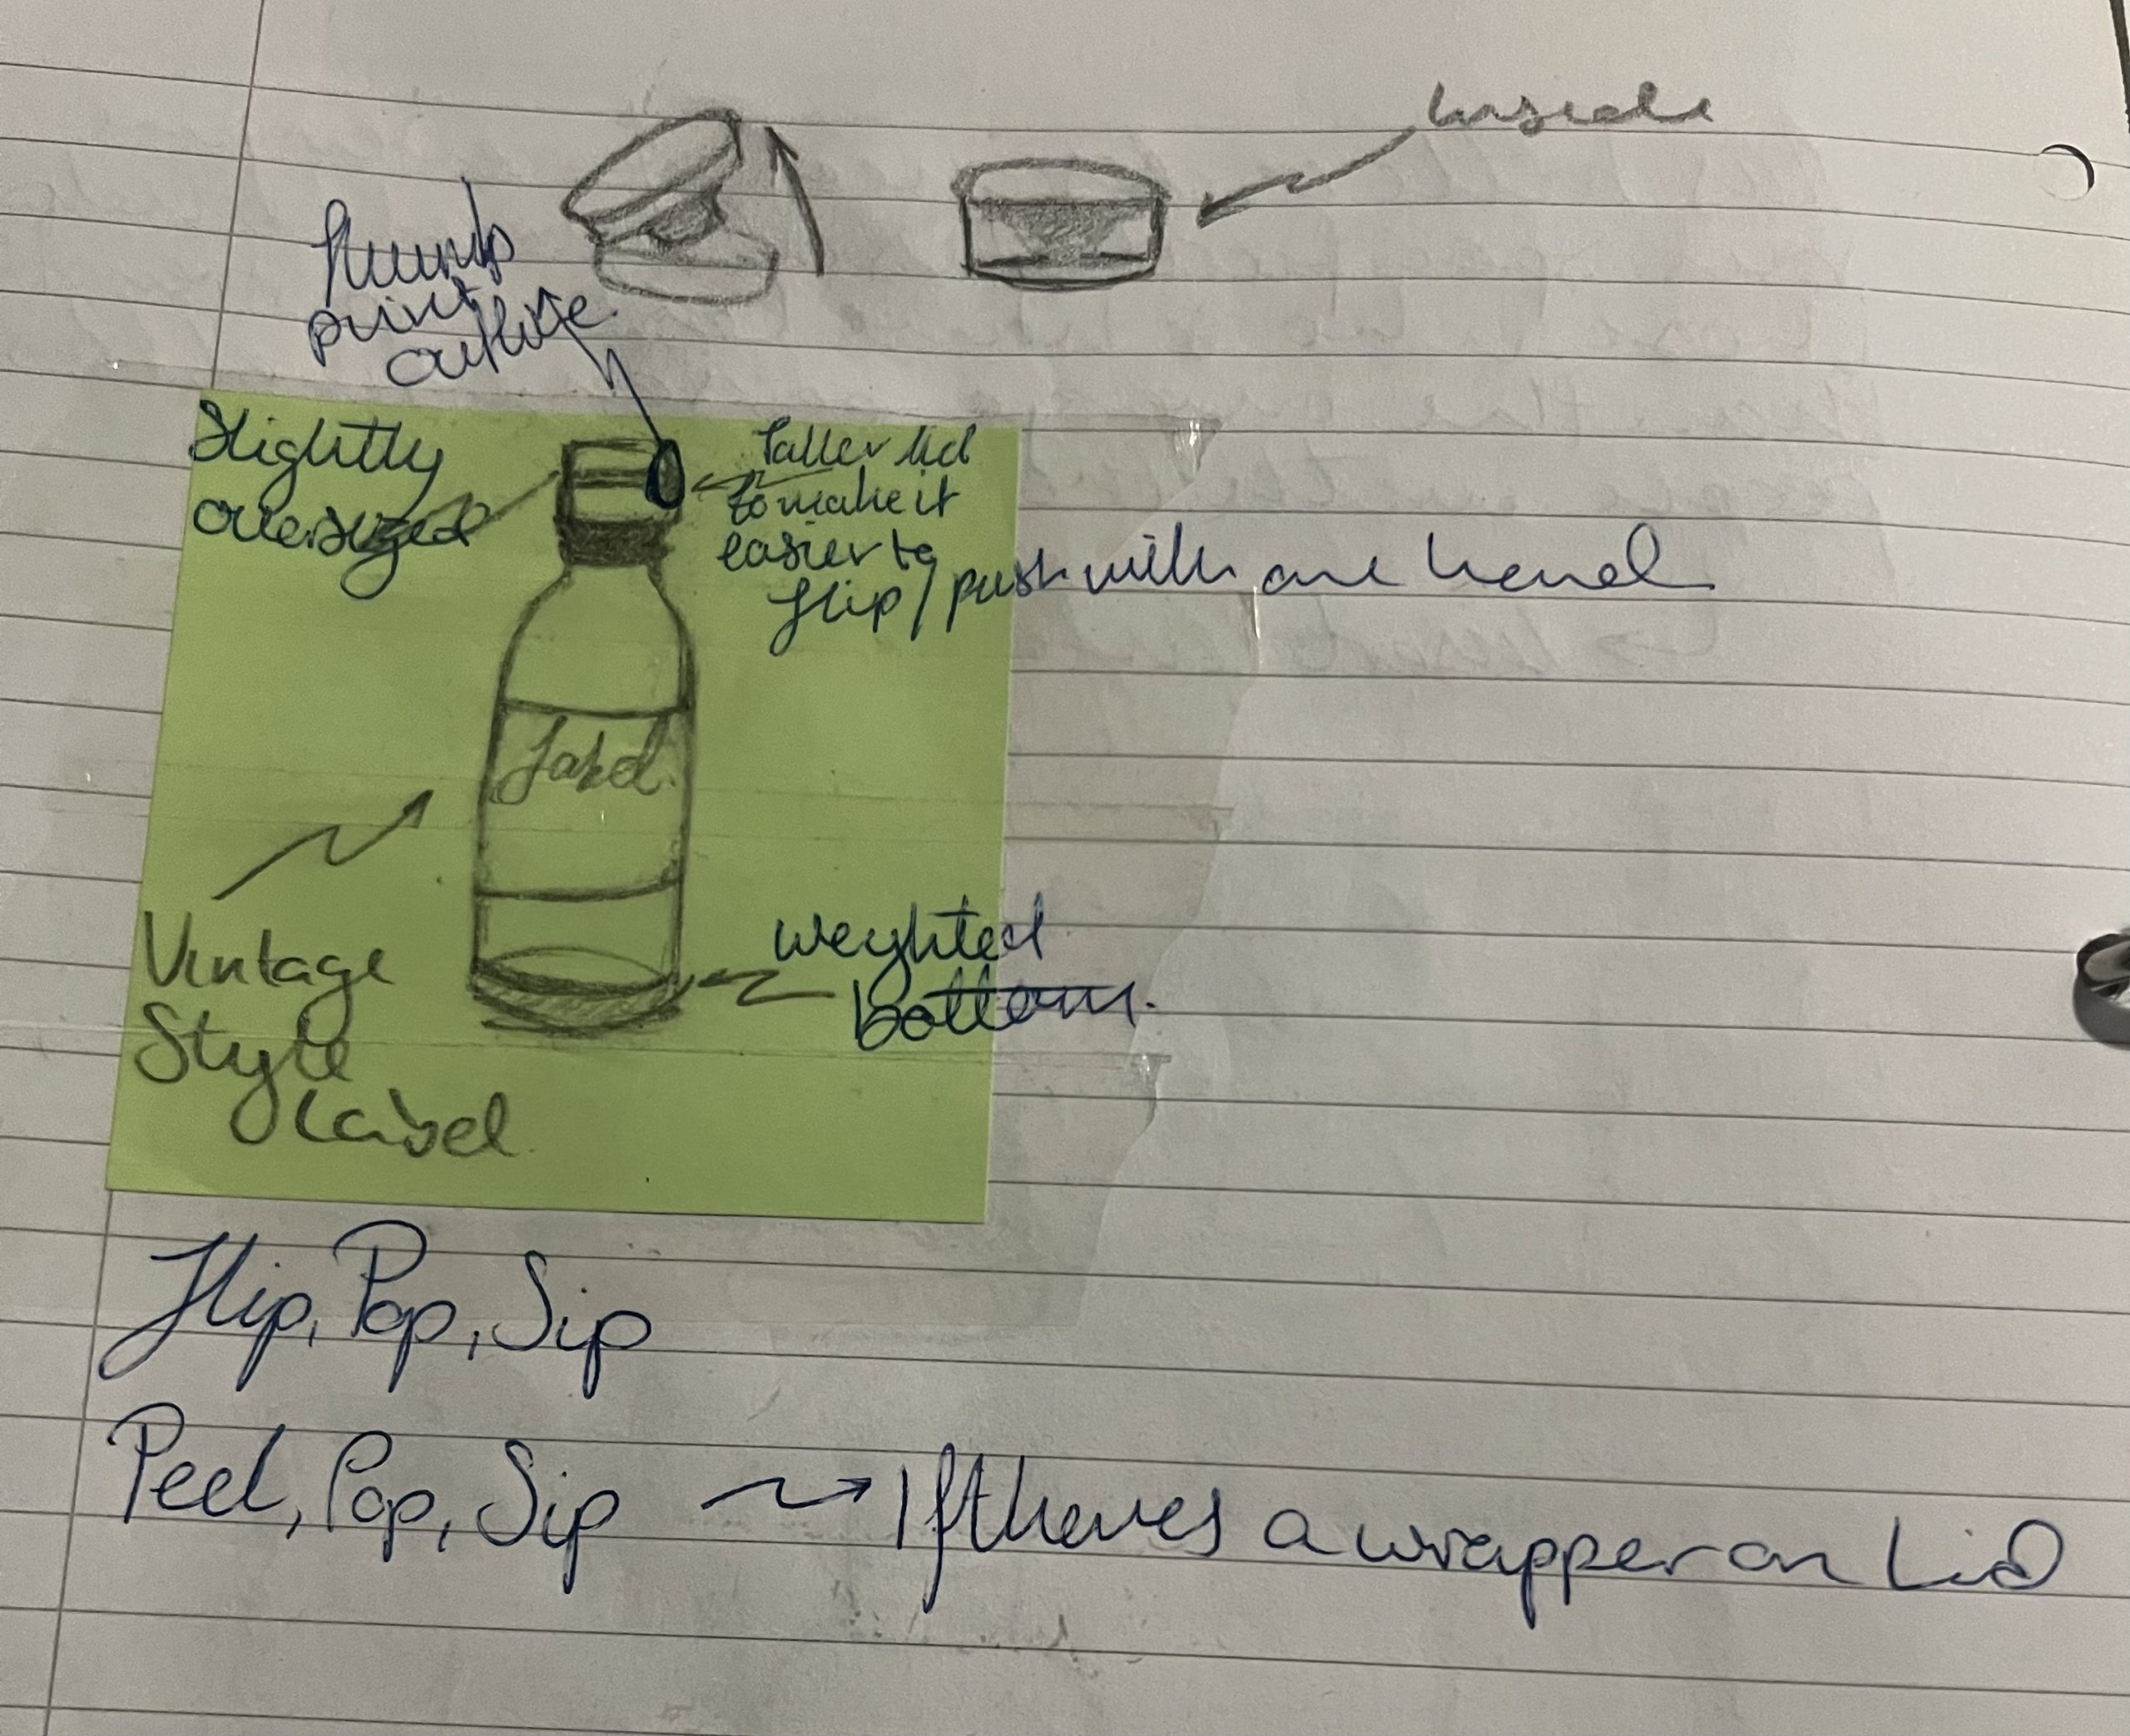 Inside
thumb
print
outline.
Slightly
oversized
Taller lid
to make it
easier to
flip / push with one hand
Label.
Vintage
Style
Label.
weighted
bottom.
Flip, Pop, Sip
Peel, Pop, Sip → If theres a wrapper on Lid